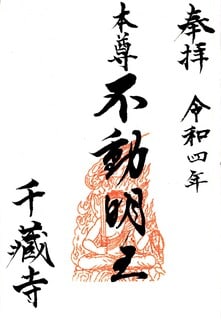 奉拝
令和四年
本尊
不動明王
千蔵寺